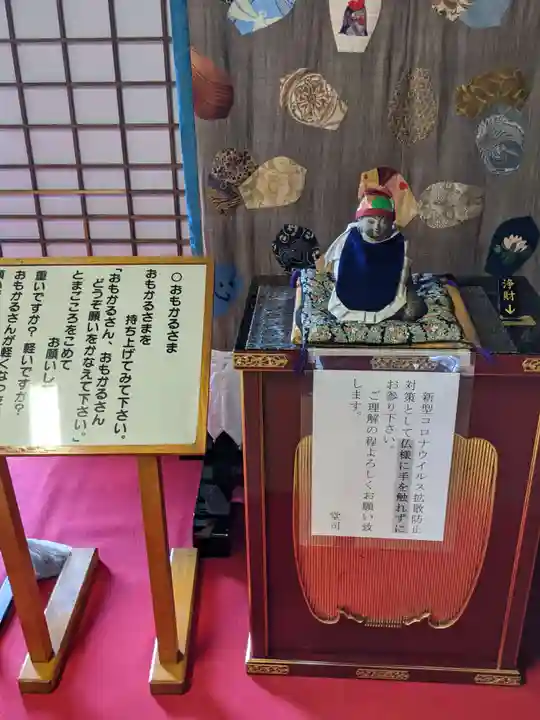 ○おもかるさま
おもかるさまを
持ち上げてみて下さい。
「おもかるさん、おもかるさん
どうぞ願いをかなえて下さい。」
とまごころをこめて
お願いし
重いですか?軽いですか?
おもかるさんが軽くなっ
新型コロナウイルス拡散防止
対策として仏様に手を触れずに
お参り下さい。
ご理解の程よろしくお願い致
します。
堂司
浄財↓